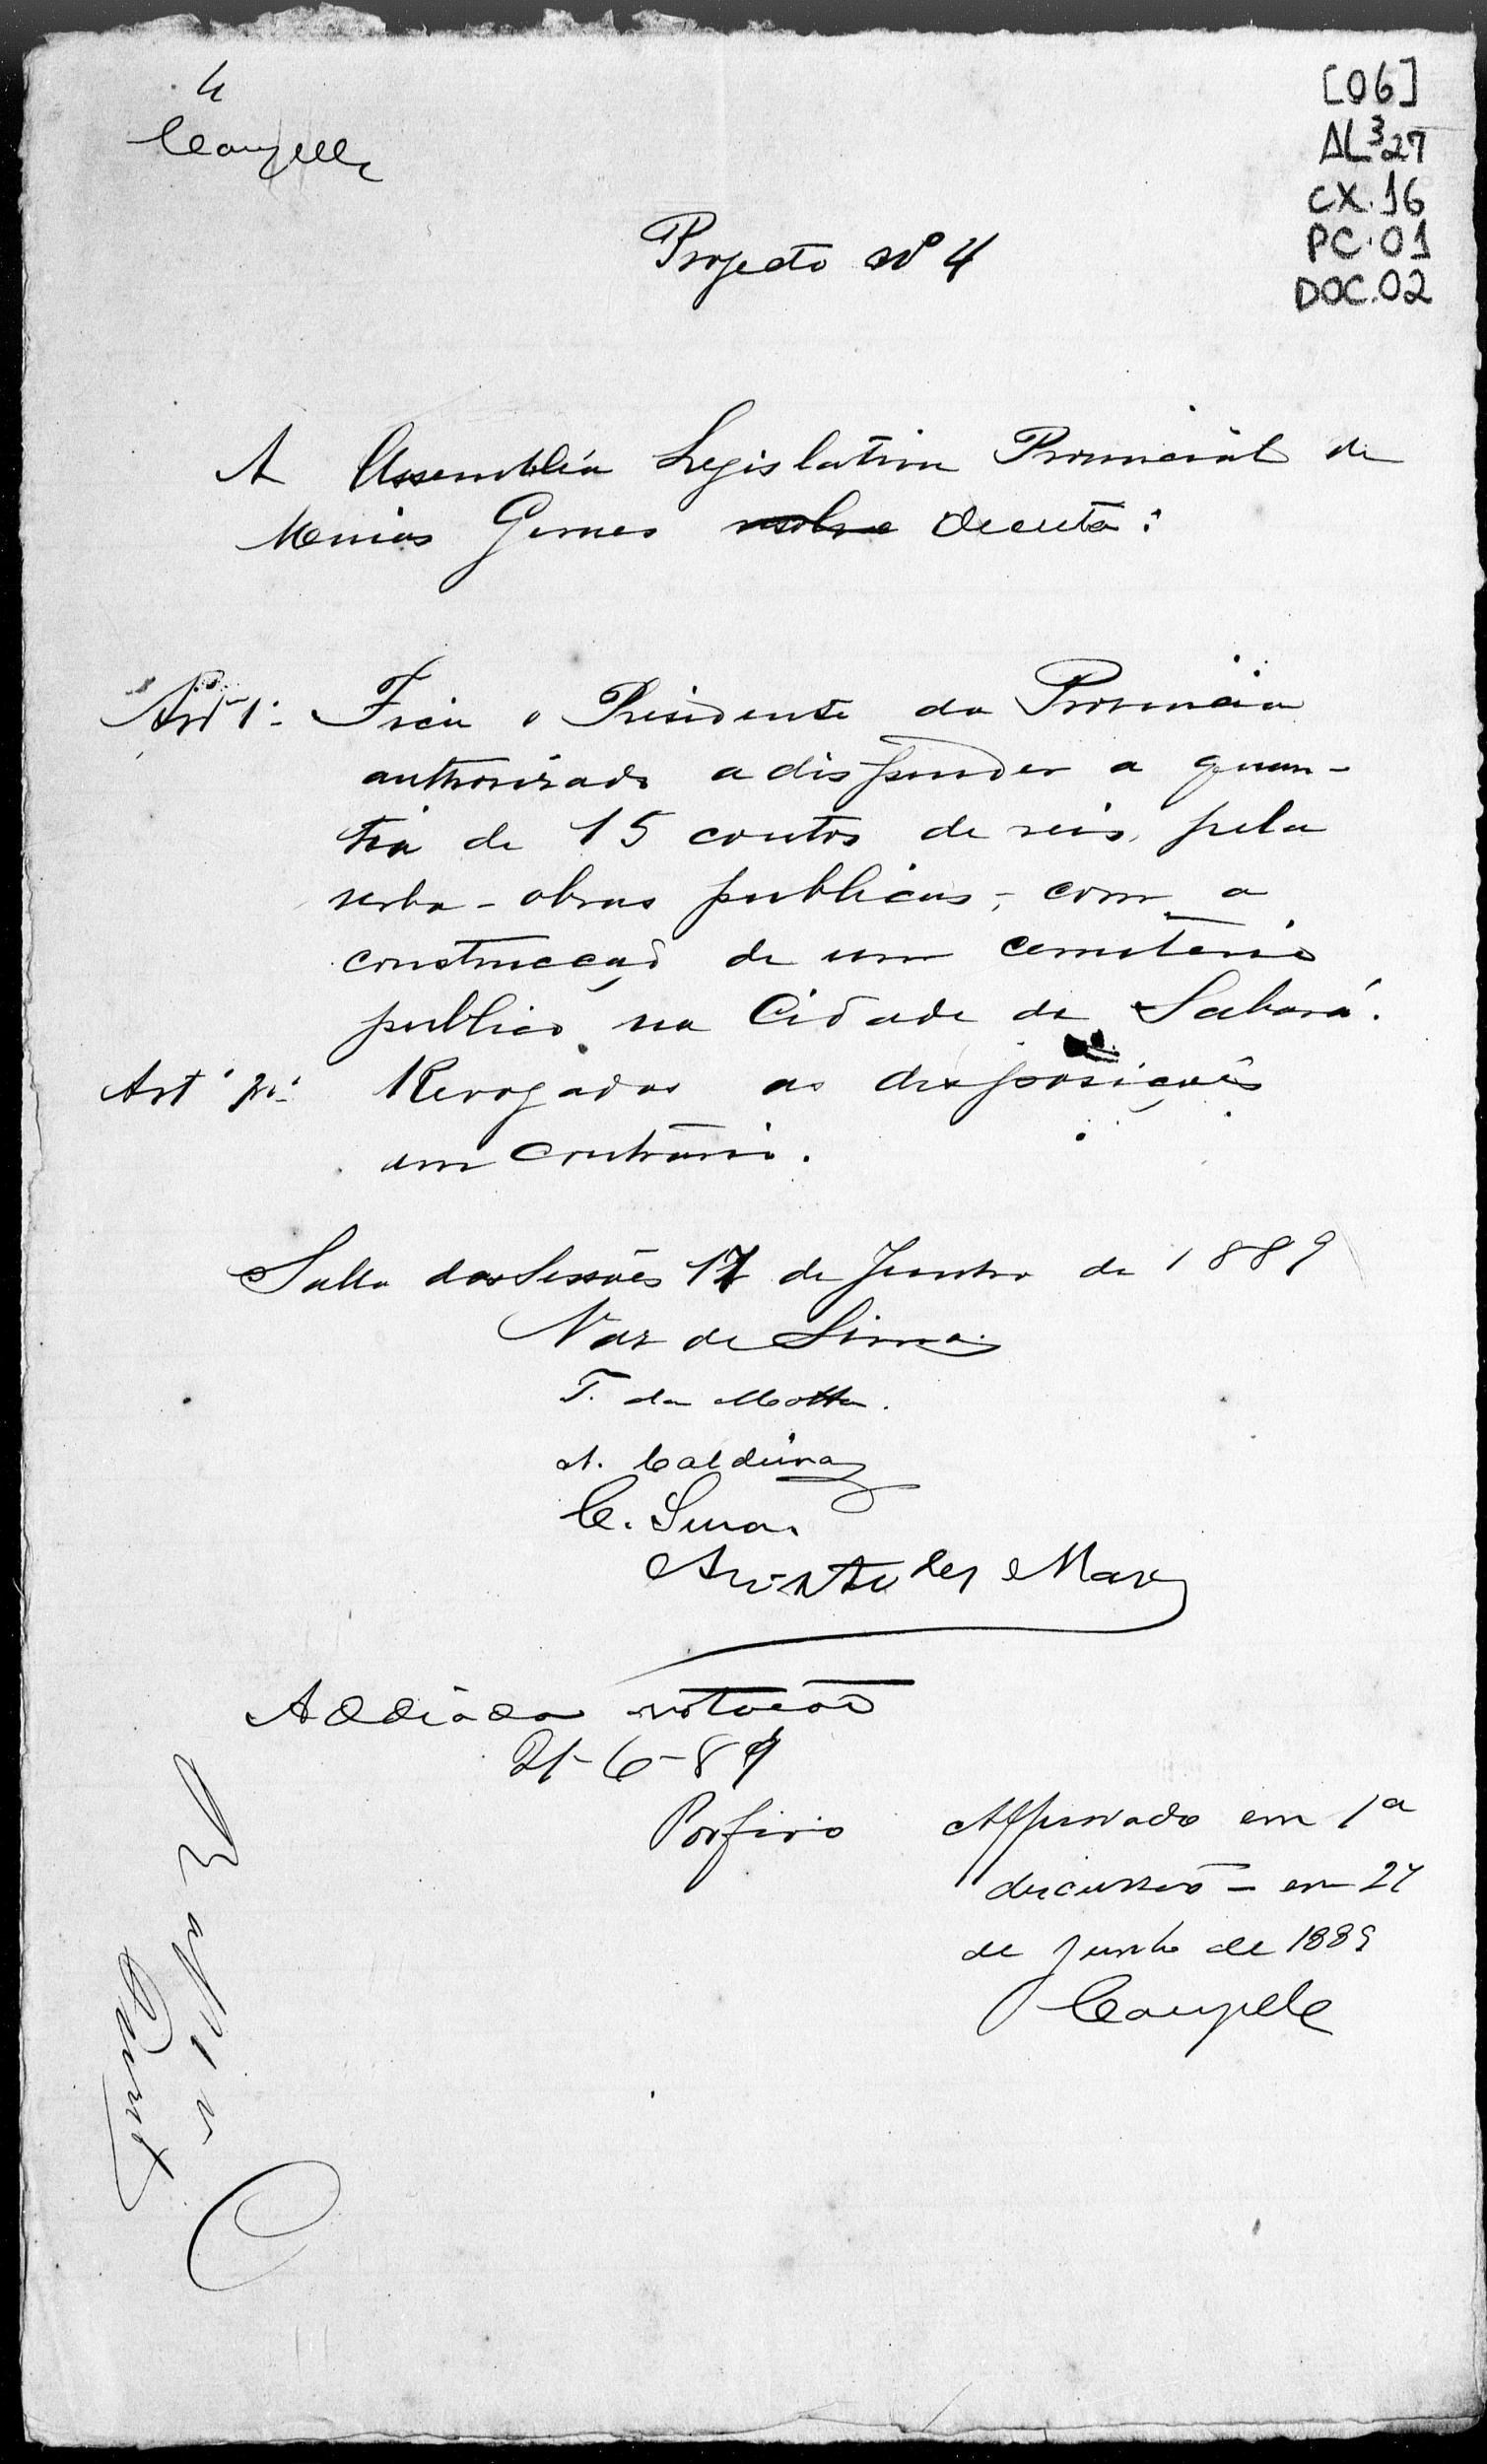 4
[06]
AL³27
CX.16
PC.01
DOC.02
Projecto nº 4
A Assembléa Legislativa Provincial de
Minas Geraes resolve decreta:
Artº 1º Fica o Presidente da Provincia
authorisado a dispender a quan-
tia de 15 contos de reis, pela
verba - obras publicas -, com a
construcção de um cemiterio
publico na Cidade de Sabará.
Artº 2º Revogadas as disposições
em contrario.
Salla das Sessões 17 de Junho de 1889
Vaz de Lima
F. da Motta.
A. Caldeira
C. Sena.
Aristides Maia
Addiada votação
21-6-89
Porfirio
Approvado em 1ª
discussão - em 27
de Junho de 1889